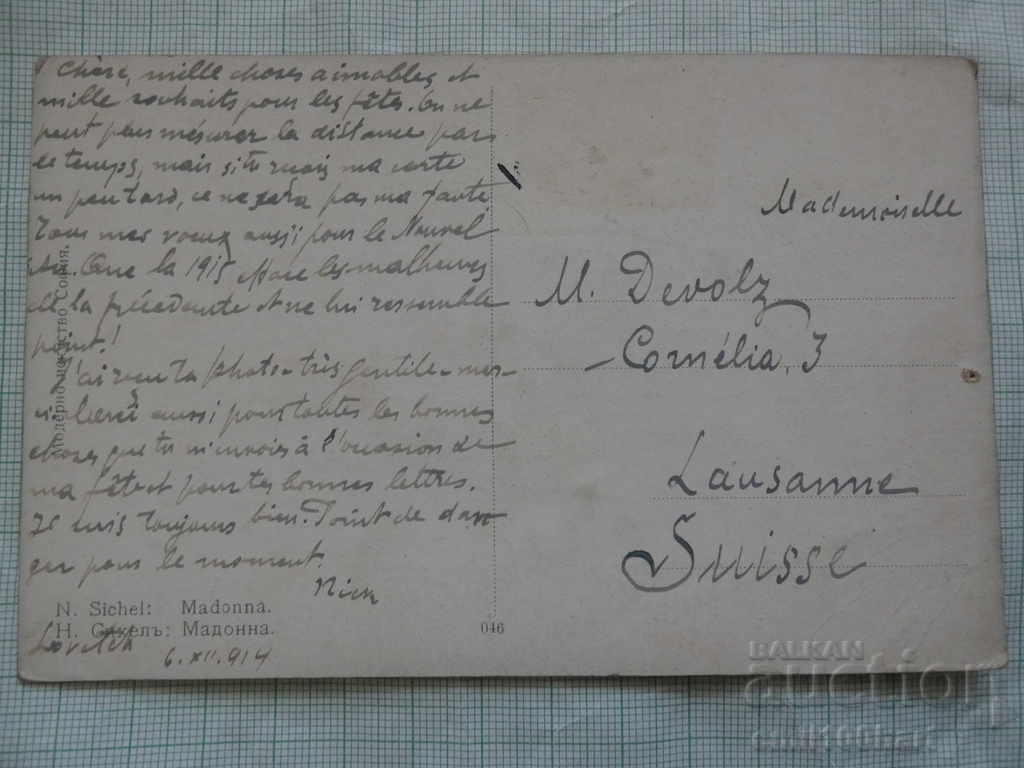 Chère, mille choses aimables et
mille souhaits pour les fêtes. On ne
peut plus mésurer la distance par
le temps, mais si tu reçois ma carte
un peu tard, ce ne sera pas ma faute
Tous mes voeux aussi pour le Nouvel
An. Que la 1915 les malheurs
de la précédente et ne lui ressemble
point!
J'ai reçu ta photo - très gentille - mer-
ci. Merci aussi pour toutes les bonnes
choses que tu m'envois à l'occasion de
ma fête et pour tes bonnes lettres.
Je suis toujours bien. Point de dan-
ger pour le moment.
N. Sichel: Madonna.
Н. Сихелъ: Мадонна.
6.XII.914
046
Mademoiselle
M. Devolz
Cornélia, 3
Lausanne
Suisse
София.
BALKAN
auction